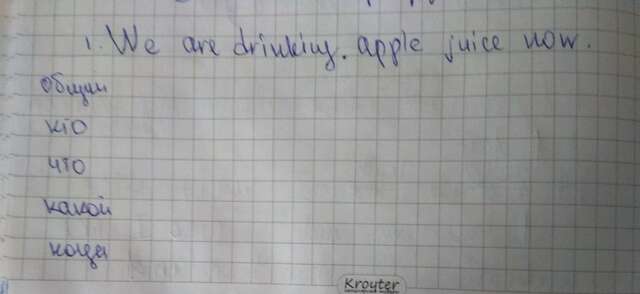 1. We are drinking. apple juice now.
общий
кто
что
какой
когда
Kroyter